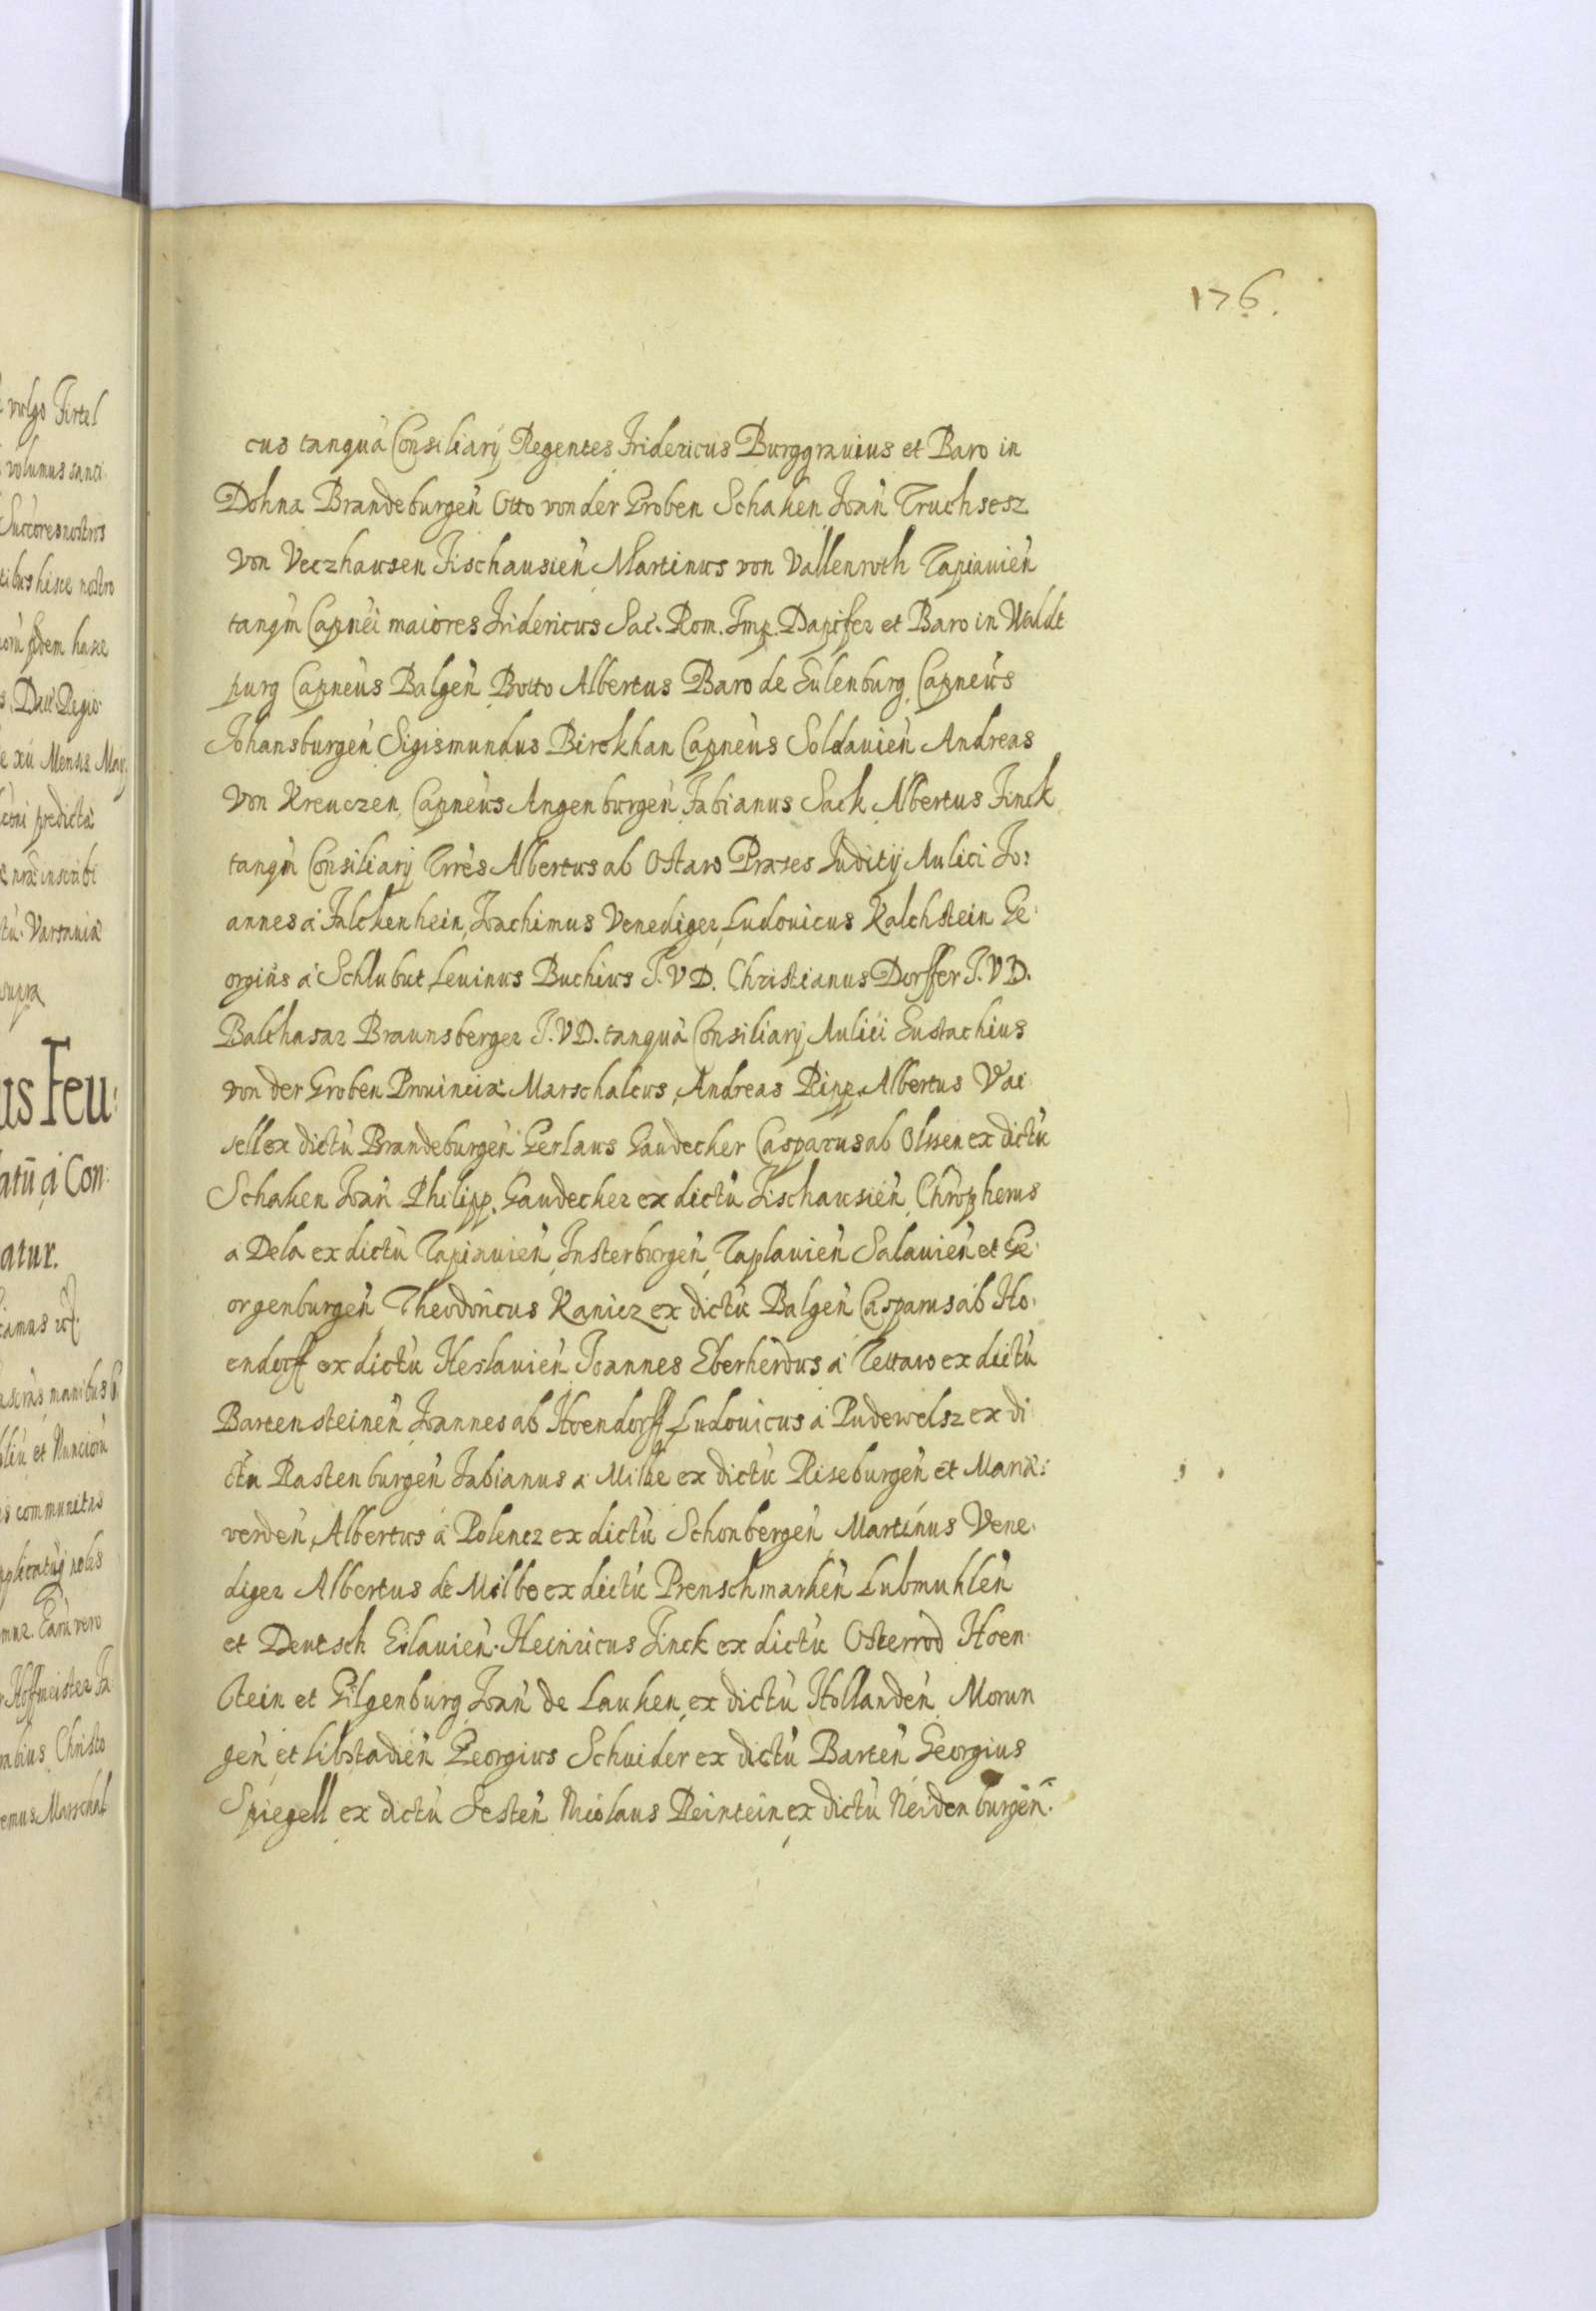 176.
cus tanquã Consiliarij Regentes Fridericus Burggrauius et Baro in
Dohna Brandeburgeñ Otto von der Groben Schaken Ioañ Truchsesz
von Veczhausen Fischausieñ Martinus von Vallenroth Tapiauieñ
tanqm̃ Capnei maiores Fridericus Sac. Rom. Imp. Dapifer et Baro in Waldt
purg Capneus Balgeñ Botto Albertus Baro de Eulenburg Capneus
Johansburgeñ Sigismundus Birckhan Capneus Soldauieñ Andreas
von Kreuczen Capneus Angenburgeñ Fabianus Sack Albertus Finck
tanqm̃ Consiliarij Trres Albertus ab Ostaw Præses Iuditij Aulici Io:
annes á Falckenhein, Ioachimus Venediger, Ludouicus Kalchstein Ge:
orgius á Schlubut Leuinus Buchius I. V D. Christianus Dorffer I. V D.
Balthasar Braunsberger I. V D. tanquã Consiliarij Aulici Eustachius
von der Groben Prouinciæ Marschalcus, Andreas Ripp. Albertus Vai
sell ex dictũ Brandeburgeñ Gerlaus Gaudecker Casparus ab Olssen ex dictũ
Schaken Ioañ Philipp. Gaudecker ex dictũ Fischausieñ Chropherus
a Dela ex dictũ Tapiauieñ, Insterburgeñ, Taplauieñ Salauieñ et Ge:
orgenburgeñ Theodoricus Kanicz ex dictũ Balgeñ Casparus ab Ho:
endorff ex dictũ Herlauieñ Ioannes Eberherdus á Tettaw ex dictũ
Bartensteineñ Ioannes ab Hoendorff Ludouicus á Pudewelsz ex di
ctũ Rastenburgeñ Fabianus a Milbe ex dictũ Riseburgeñ et Mariæ:
verdeñ, Albertus á Polencz ex dictũ Schonbergeñ Martinus Vene:
diger Albertus de Milbe ex dictũ Prenschmarkeñ Lubmuhleñ
et Deutsch Eilauieñ. Heinricus Finck ex dictũ Osterrod Hoen:
stein et Gilgenburg Ioañ de Lauken ex dictũ Hollandeñ Morun
geñ et Libstadieñ Georgius Schuider ex dictũ Barteñ Georgius
Spiegell ex dictũ Sesteñ Nicolaus Reintein ex dictũ Neidenburgeñ.
vulgo Firtel
volumus sanci
Succores nostros
fidem hasce
xii Mensis Maij
predicta
inscribi
Varsauiæ
supra
us Feu:
atũ á Con:
atur.
manibus
et Nunciorũ
communitas
Earũ vero
Hoffmeister
Christo
Marschal